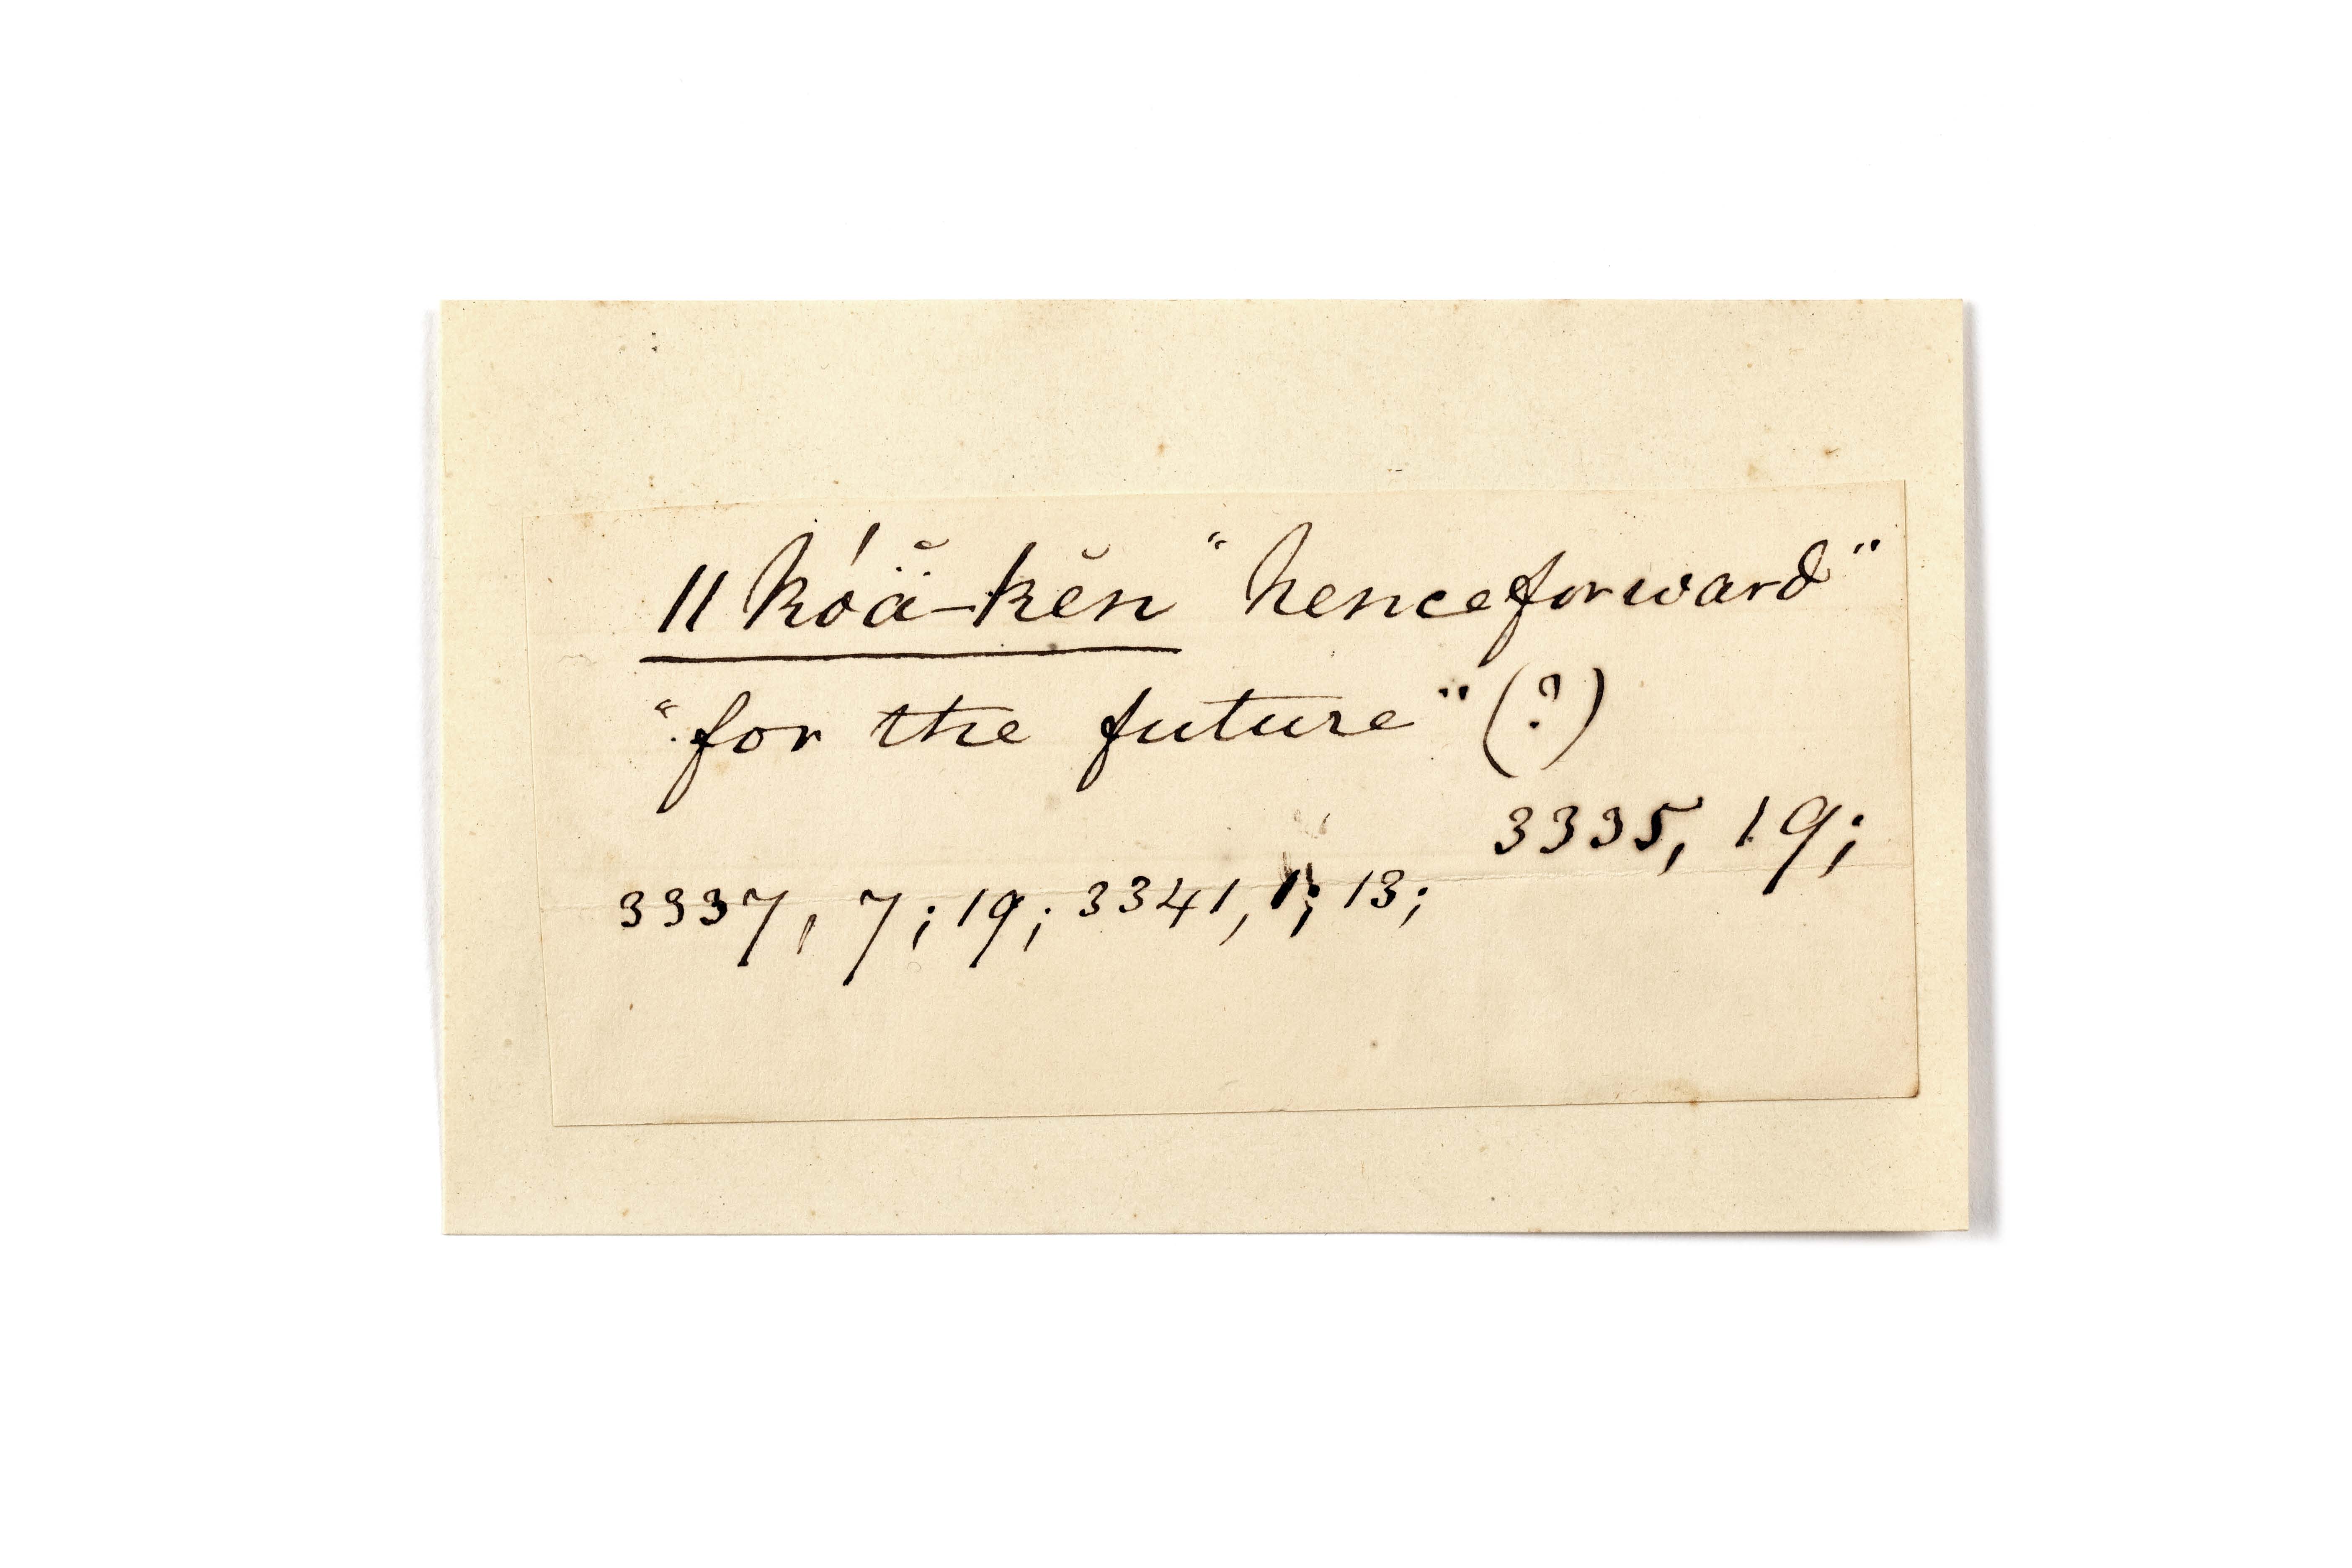 ǁkóä̆-kĕn "henceforward"
"for the future" (?)
3335, 19;
3337, 7; 19; 3341, 1; 13;